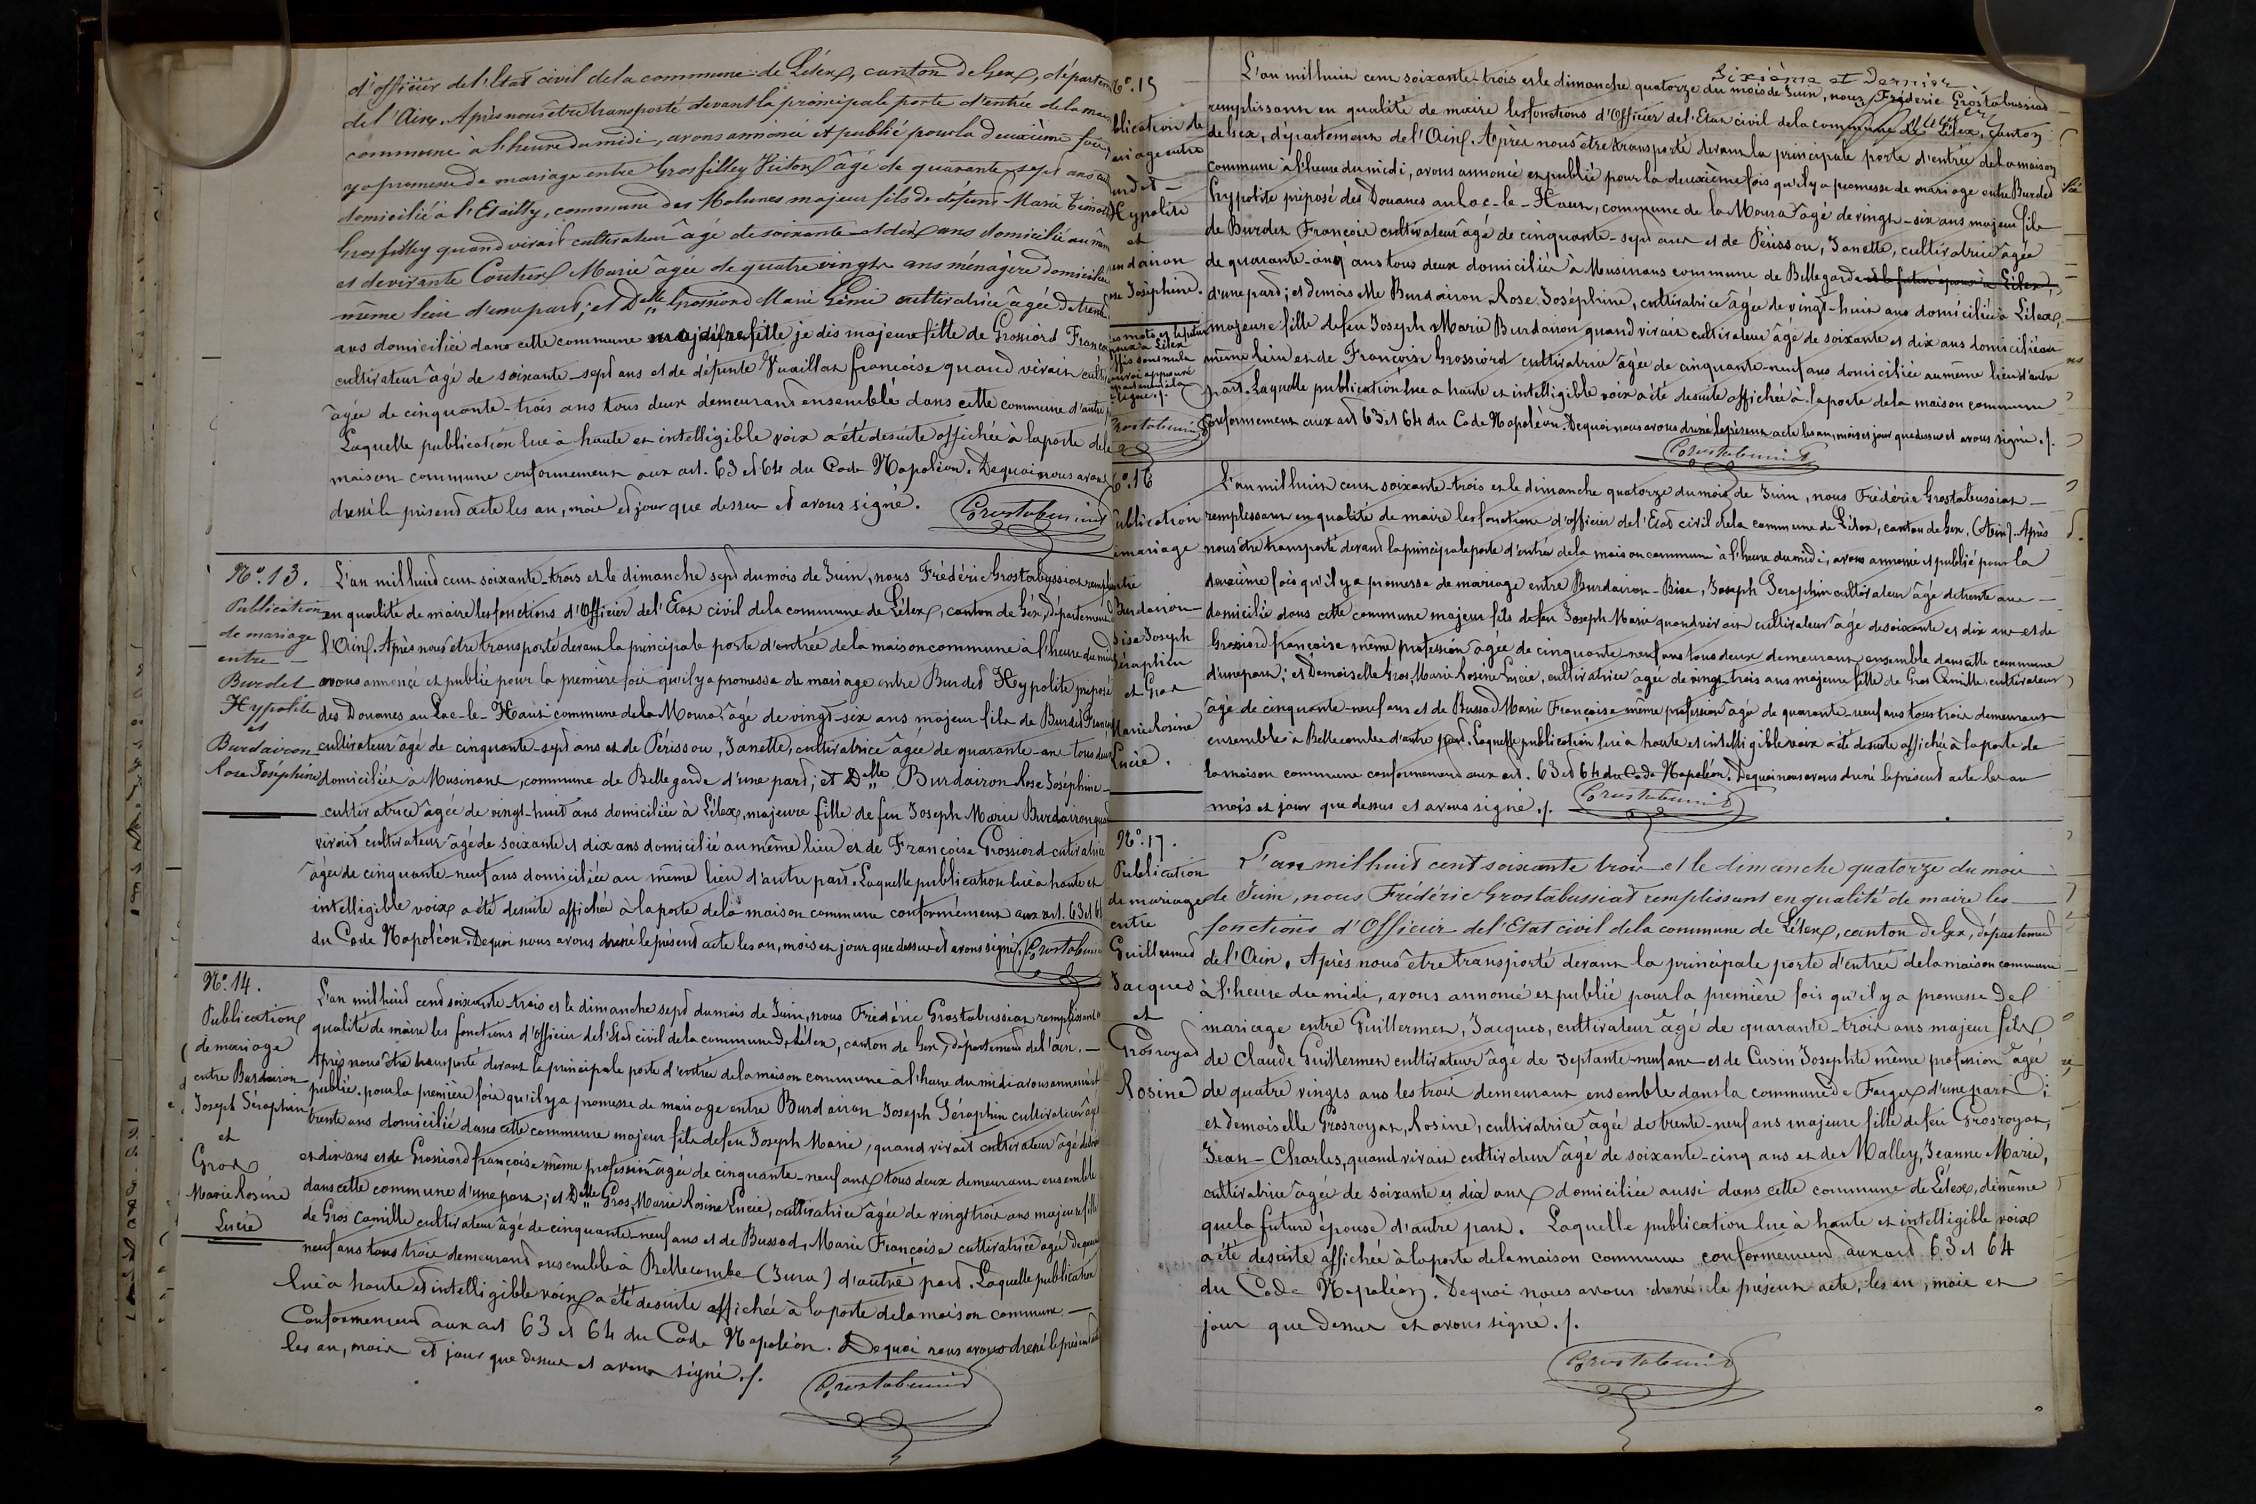 d'officier de l'Etat civil de la commune de Lélex, canton de Gex, départem
de l'Ain. Après nous être transporté devant la principale porte d'entrée de la mai
commune à l'heure du midi, avons annoncé et publié pour la deuxième fois
y a promesse de mariage entre Grosfilley Victor âgé de quarante-sept ans
domicilié à l'Etailly, commune des Molunes majeur fils de défunt Marie
Grosfilley quand vivait cultivateur âgé de soixante et dix ans domicilié au
et de vivante Coutier Marie âgée de quatre vingts ans ménagère domiciliée
même lieu d'une part; et Delle Grossiord Marie cultivatrice âgée de trente
ans domiciliée dans cette commune fille je dis majeure fille de Grossiord Franço
cultivateur âgé de soixante-sept ans et de défunte Vuaillat françoise quand vivait cultiv
âgée de cinquante-trois ans tous deux demeurant ensemble dans cette commune d'autre p
Laquelle publication lue à haute et intelligible voix a été desuite affichée à la porte de la
maison commune conformement aux art. 63 et 64 du Code Napoléon. De quoi nous avons
dressé le présent acte les an, mois et jour que dessus et avons signé.
Grostabussiat
N° 13.
Publication
de mariage
entre
Burdet
Hypolite
et
Burdairon
Rose Joséphine
L'an mil huit cent soixante-trois et le dimanche sept du mois de Juin, nous Frédéric Grostabussiat rempl
en qualité de maire les fonctions d'Officier de l'Etat civil de la commune de Lélex, canton de Gex, département
l'Ain. Après nous être transporté devant la principale porte d'entrée de la maison commune à l'heure du midi
avons annoncé et publié pour la première fois qu'il y a promesse de mariage entre Burdet Hypolite préposé
des Douanes au Lac-le-Haut commune de la Moura âgé de vingt-six ans majeur fils de Burdet François
cultivateur âgé de cinquante-sept ans et de Périssou, Janette, cultivatrice âgée de quarante-ans tous deux
domiciliés à Musinans, commune de Bellegarde d'une part; et Delle Burdairon Rose Joséphine
cultivatrice âgée de vingt-huit ans domiciliée à Lélex, majeure fille de feu Joseph Marie Burdairon quand
vivait cultivateur âgé de soixante et dix ans domicilié au même lieu et de Françoise Grossiord cultivatrice
âgée de cinquante-neuf ans domiciliée au même lieu d'autre part. Laquelle publication lue à haute et
intelligible voix a été desuite affichée à la porte de la maison commune conformément aux art. 63 et 6
du Code Napoléon. De quoi nous avons dressé le présent acte les an, mois et jour que dessus et avons signé.
Grostabussiat
N° 14.
Publication
de mariage
entre Burdairon
Joseph Séraphin
et
Gros
Marie Rosine
Lucie
L'an mil huit cent soixante-trois et le dimanche sept du mois de Juin, nous Frédéric Grostabussiat remplissant
qualité de maire les fonctions d'Officier de l'Etat civil de la commune de Lélex, canton de Gex, département de l'ain.
Après nous être transporté devant la principale porte d'entrée de la maison commune à l'heure du midi avons annoncé et
publié pour la première fois qu'il y a promesse de mariage entre Burdairon Joseph Séraphin cultivateur âgé
trente ans domicilié dans cette commune majeur fils de feu Joseph Marie, quand vivait cultivateur âgé de
et dix ans et de Grossiord françoise même profession âgée de cinquante-neuf ans tous deux demeurant ensemble
dans cette commune d'une part; et Delle Gros, Marie Rosine Lucie, cultivatrice âgée de vingt trois ans majeure fille
de Gros Camille cultivateur âgé de cinquante-neuf ans et de Bussod, Marie Françoise cultivatrice âgée de
neuf ans tous trois demeurant ensemble à Bellecombe (Jura) d'autre part. Laquelle publication
lue à haute et intelligible voix a été desuite affichée à la porte de la maison commune
Conformément aux art 63 et 64 du Code Napoléon. De quoi nous avons dressé le présent
les an, mois et jour que dessus et avons signé ./.
Grostabussiat
N° 15
blication de
ariage entre
urdet
Hypolite
et
urdairon
se Joséphine.
Grostabussiat
Sixième et Dernier
L'an mil huit cent soixante-trois et le dimanche quatorze du mois de Juin, nous Frédéric Grostabussiat
remplissant en qualité de maire les fonctions d'Officier de l'Etat civil de la commune de Lélex, canton
de Gex, département de l'Ain. Après nous être transporté devant la principale porte d'entrée de la maison
commune à l'heure du midi, avons annoncé et publié pour la deuxième fois qu'il y a promesse de mariage entre Burdet
Hypolite préposé des Douanes au Lac-le-Haut, commune de la Moura âgé de vingt-six ans majeur fils
de Burdet François cultivateur âgé de cinquante-sept ans et de Périssou, Janette, cultivatrice âgée
de quarante-cinq ans tous deux domiciliés à Musinans commune de Bellegarde et le futur époux à Lélex,
d'une part; et demoiselle Burdairon Rose Joséphine, cultivatrice âgée de vingt-huit ans domiciliée à Lélex,
majeure fille de feu Joseph Marie Burdairon quand vivait cultivateur âgé de soixante et dix ans domicilié au
même lieu et de Françoise Grossiord cultivatrice âgée de cinquante-neuf ans domiciliée au même lieu d'autre
part. Laquelle publication lue à haute et intelligible voix a été desuite affichée à la porte de la maison commune
conformement aux art 63 et 64 du Code Napoléon. De quoi nous avons dressé le présent acte les an, mois et jour que dessus et avons signé ./.
Grostabussiat
N° 16
Publication
mariage
entre
Burdairon
Bise Joseph
Séraphin
et Gros
Marie Rosine
Lucie.
L'an mil huit cent soixante-trois et le dimanche quatorze du mois de Juin, nous Frédéric Grostabussiat
remplissant en qualité de maire les fonctions d'officier de l'Etat civil de la commune de Lélex, canton de Gex, (Ain). Après
nous être transporté devant la principale porte d'entrée de la maison commune à l'heure du midi, avons annoncé et publié pour la
deuxième fois qu'il y a promesse de mariage entre Burdairon-Bise, Joseph Seraphin cultivateur âgé de trente ans
domicilié dans cette commune majeur fils de feu Joseph-Marie quand vivait cultivateur âgé de soixante et dix ans et de
Grossiord françoise même profession âgée de cinquante neuf ans tous deux demeurant ensemble dans cette commune
d'une part; et Demoiselle Gros, Marie Rosine Lucie, cultivatrice âgée de vingt-trois ans majeure fille de Gros Camille cultivateur
âgé de cinquante-neuf ans et de Bussod Marie Françoise même profession âgée de quarante-neuf ans tous trois demeurant
ensemble à Bellecombe d'autre part. Laquelle publication lue à haute et intelligible voix a été desuite affichée à la porte de
la maison commune conformement aux art. 63 et 64 du Code Napoléon. De quoi nous avons dressé le présent acte les an
mois et jour que dessus et avons signé ./.
Grostabussiat
N° 17.
Publication
de mariage
entre
Guillermet
Jacques
et
Grosroyat
Rosine
L'an mil huit cent soixante trois et le dimanche quatorze du mois
de Juin, nous Frédéric Grostabussiat remplissant en qualité de maire les
fonctions d'Officier de l'Etat civil de la commune de Lélex, canton de Gex, département
de l'Ain. Après nous être transporté devant la principale porte d'entrée de la maison commune
à l'heure du midi, avons annoncé et publié pour la première fois qu'il y a promesse de
mariage entre Guillermet, Jacques, cultivateur âgé de quarante-trois ans majeur fils
de Claude Guillermet cultivateur âgé de septante-neuf ans et de Cusin Josephte même profession âgée
de quatre vingts ans les trois demeurant ensemble dans la commune de Farges d'une part;
et demoiselle Grosroyat, Rosine, cultivatrice âgée de trente-neuf ans majeure fille de feu Grosroyat,
Jean-Charles, quand vivait cultivateur âgé de soixante-cinq ans et de Malley, Jeanne Marie,
cultivatrice âgée de soixante et dix ans domiciliée aussi dans cette commune de Lélex, de même
que la future épouse d'autre part. Laquelle publication lue à haute et intelligible voix
a été desuite affichée à la porte de la maison commune conformement aux art 63 et 64
du Code Napoléon. De quoi nous avons dressé le présent acte, les an, mois et
jour que dessus et avons signé ./.
Grostabussiat